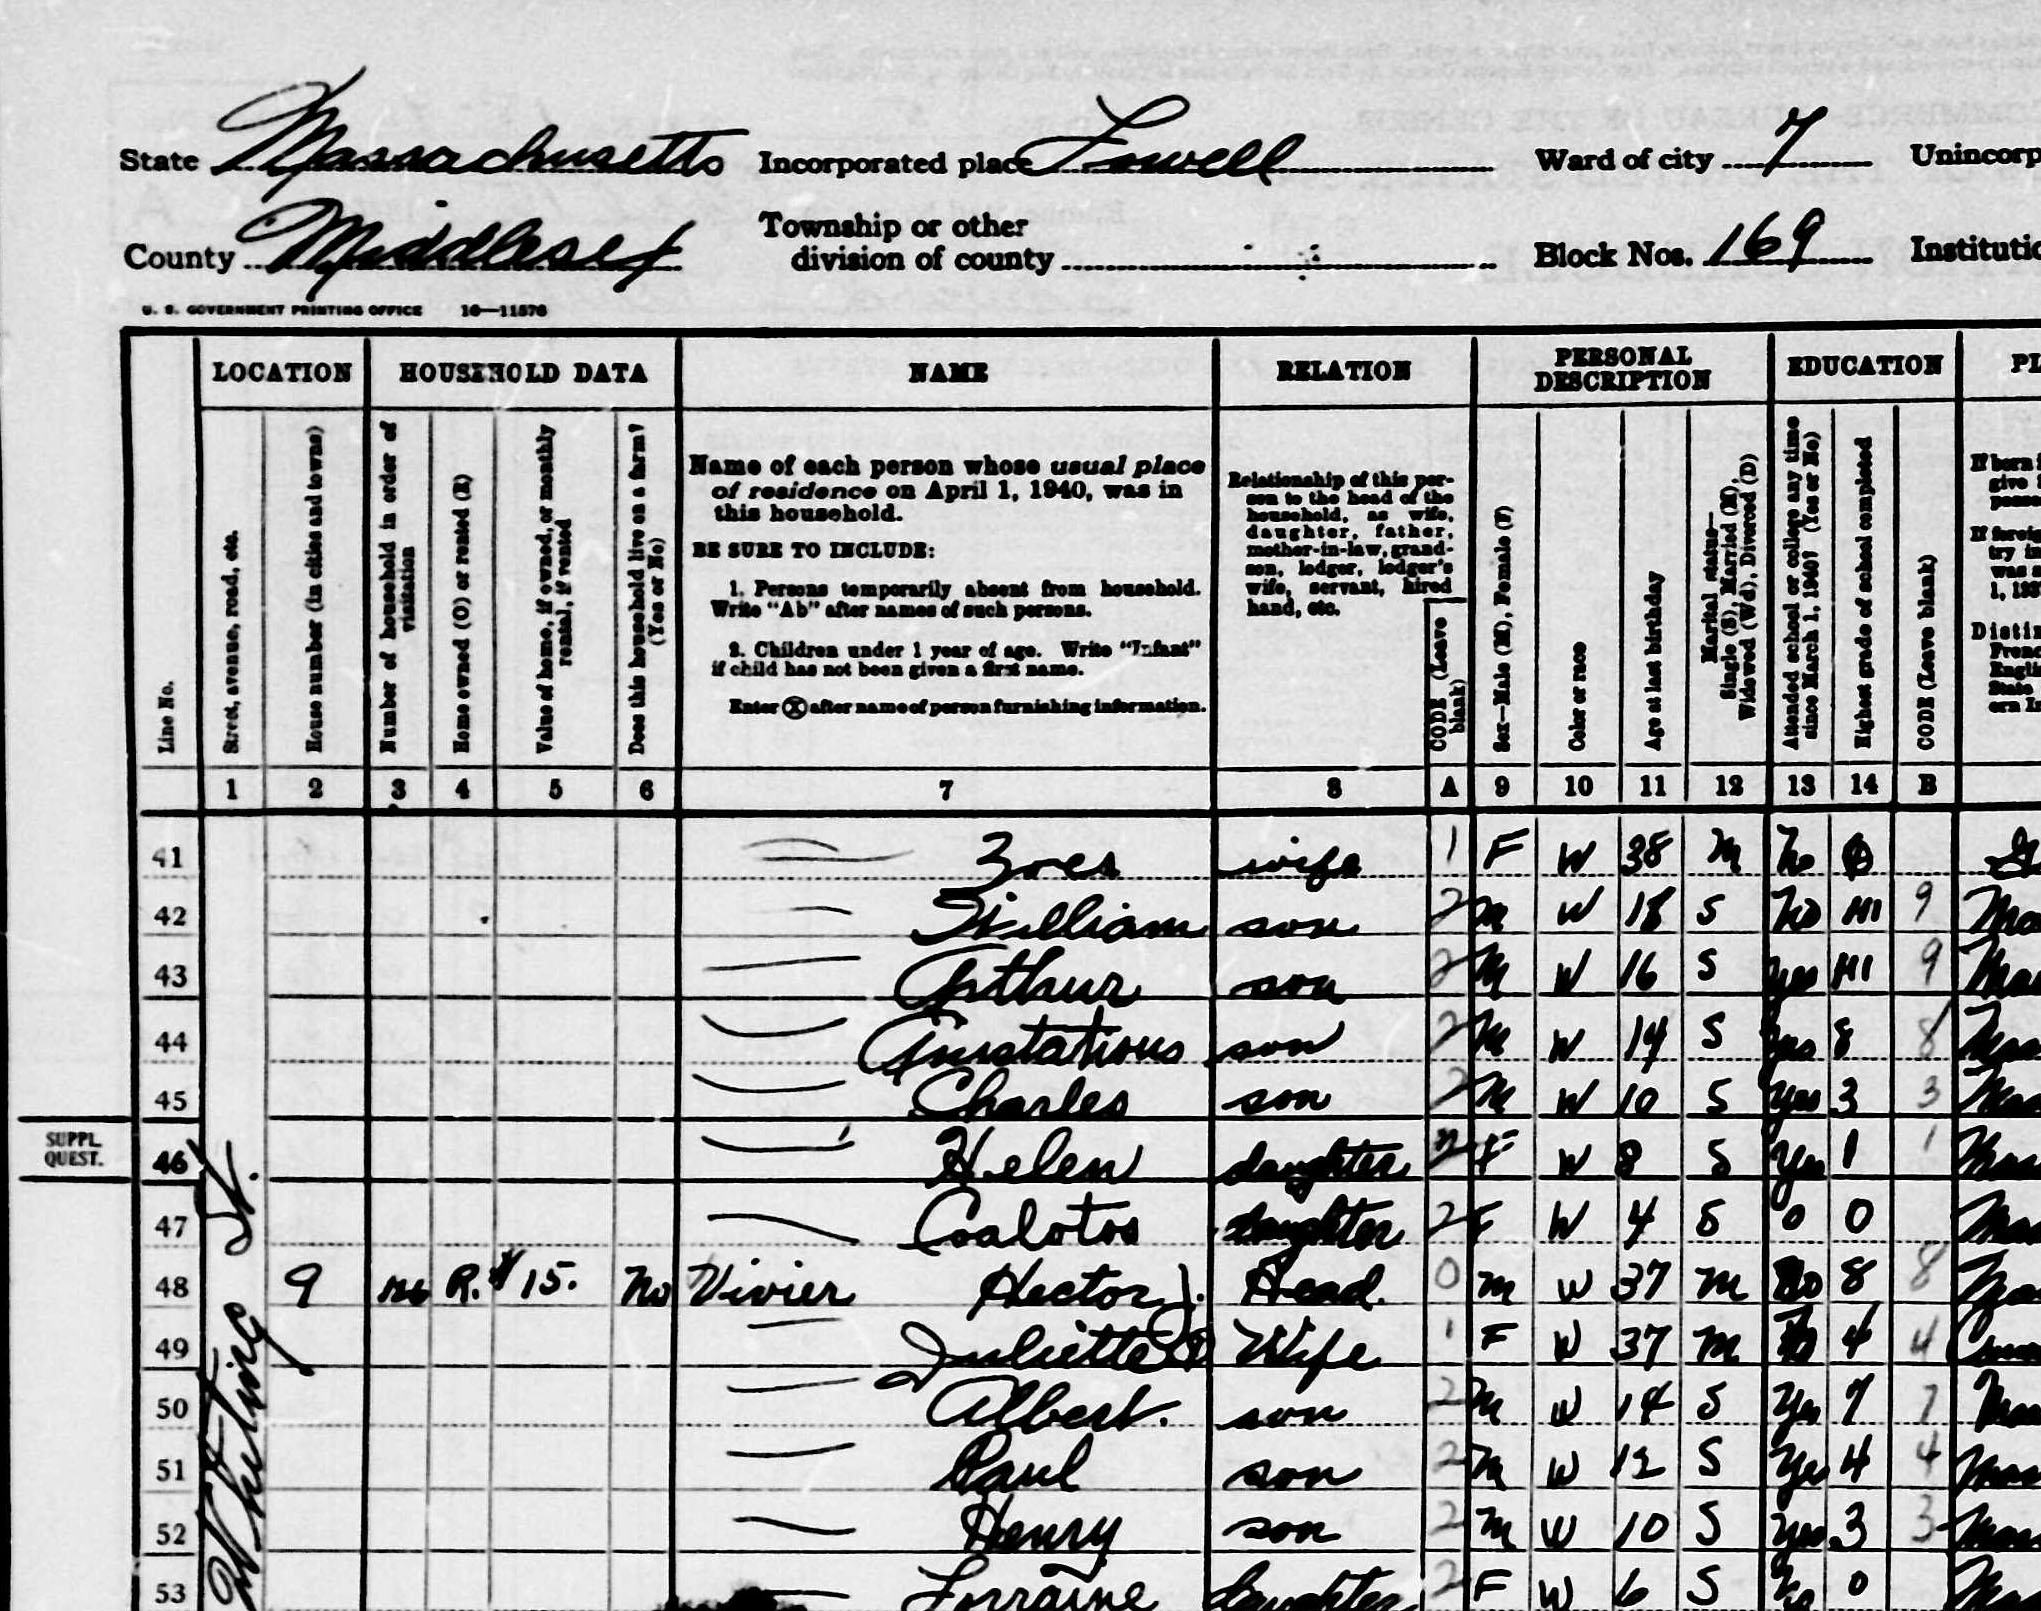 State Massachusetts Incorporated place Lowell Ward of city 7 Unincorp
County Middlesex Township or other division of county Block Nos. 169 Institutio
U. S. GOVERNMENT PRINTING OFFICE 16—11576
LOCATION HOUSEHOLD DATA NAME RELATION PERSONAL DESCRIPTION EDUCATION PL
Line No.
Street, avenue, road, etc.
House number (in cities and towns)
Number of household in order of visitation
Home owned (O) or rented (R)
Value of home, if owned, or monthly rental, if rented
Does this household live on a farm? (Yes or No)
Name of each person whose usual place
of residence on April 1, 1940, was in
this household.
BE SURE TO INCLUDE:
1. Persons temporarily absent from household.
Write "Ab" after names of such persons.
2. Children under 1 year of age. Write "Infant"
if child has not been given a first name.
Enter Ⓧ after name of person furnishing information.
Relationship of this per-
son to the head of the
household, as wife,
daughter, father,
mother-in-law, grand-
son, lodger, lodger's
wife, servant, hired
hand, etc.
CODE (Leave blank)
Sex—Male (M), Female (F)
Color or race
Age at last birthday
Marital status—Single (S), Married (M), Widowed (Wd), Divorced (D)
Attended school or college any time since March 1, 1940? (Yes or No)
Highest grade of school completed
CODE (Leave blank)
If born i
give S
posse
If foreig
try in
was s
1, 193
Distin
Frenc
Engli
State
ern Ir
1 2 3 4 5 6 7 8 A 9 10 11 12 13 14 B
41 Zoes wife 1 F W 38 M No 0
42 William son 2 M W 18 S No H1 9 Ma
43 Arthur son 2 M W 16 S Yes H1 9 Mas
44 son 2 M W 14 S Yes 8 8 Mas
45 Charles son 2 M W 10 S Yes 3 3 Mas
SUPPL. QUEST.
46 Helen daughter 2 F W 8 S Yes 1 1 Mas
47 Coalotos daughter 2 F W 4 S 0 0 Mas
48 9 R. $15. No Vivier Hector J. Head 0 M W 37 M No 8 8
49 Juliette Ⓧ Wife 1 F W 37 M No 4 4
50 Albert. son 2 M W 14 S Yes 7 7 Mas
51 Paul son 2 M W 12 S Yes 4 4 Mas
52 Henry son 2 M W 10 S Yes 3 3 Mas
53 Lorraine daughter 2 F W 6 S No 0 Mas
Whiting St.